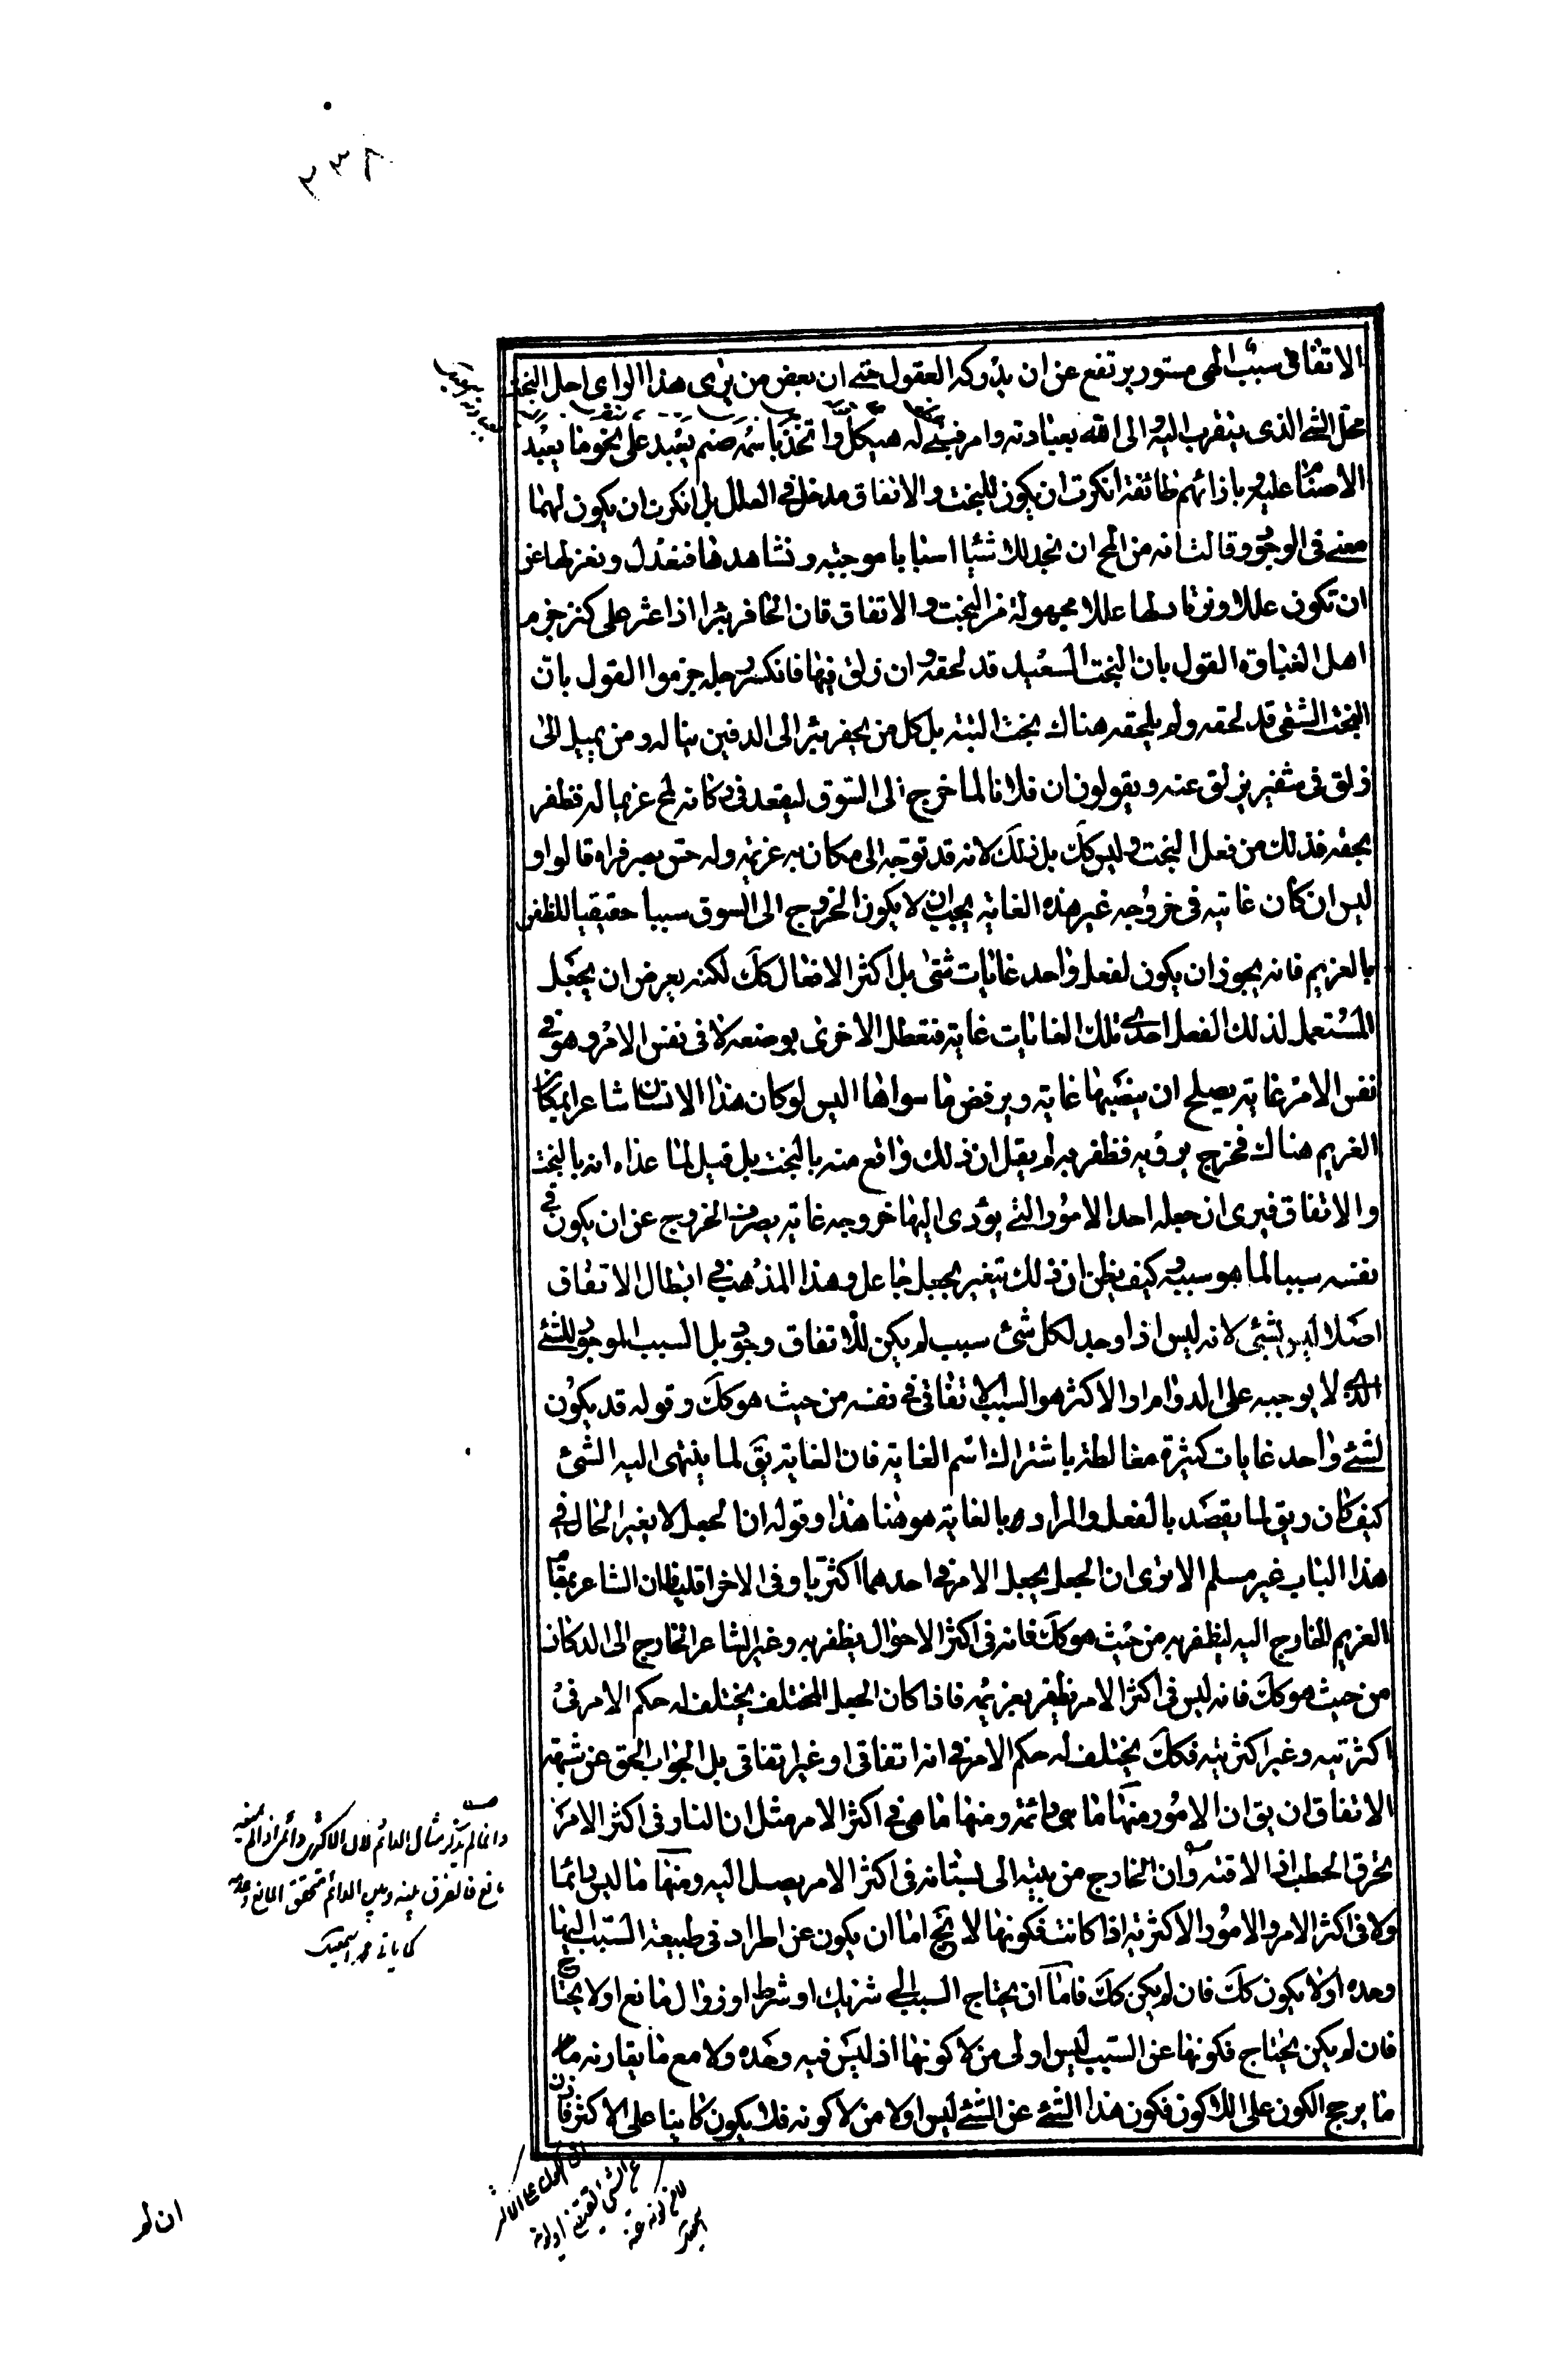 ٢٣٨
الاتفاقى سبب الهى مستور يرتفع عن ان يدركه العقول حتى ان بعض من يرى هذا الراى احل البخت
محل الشئ الذى يتقرب اليه والى الله بعبادته وامر فبنى له هيكل واتخذ باسمه صنم يعبد على نحو ما يعبد
الاصنام عليه وبازائهم طائفة انكرت ان يكون للبخت والاتفاق مدخل فى العلل بل انكرت ان يكون لهما
معنى فى الوجود وقالت انه من المح ان نجد للاشياء اسبابا موجبه ونشاهدها فنعدل ونعزلها عن
ان تكون عللا ونرتاد لها عللا مجهولة من البخت والاتفاق فان الحافر بئرا اذا عثر على كنز جزم
اهل الغباوة القول بان البخت السعيد قد لحقه وان زلق فيها فانكسر رجله جزموا القول بان
البخت الشقى قد لحقه ولم يلحقه هناك بخت البتة بل كل من يحفر بئرا الى الدفين يناله ومن يميل الى
زلق فى شفير يزلق عنه ويقولون ان فلانا لما خرج الى السوق ليقعد فى دكانه لمح غريما له فظفر
بحقه فذلك من فعل البخت وليس كك بل ذلك لانه قد توجه الى مكان به غريمه وله حس بصر فراه قالوا و
ليس ان كان غايته فى خروجه غير هذه الغاية يجب ان لا يكون الخروج الى السوق سببا حقيقيا للظفر
بالغريم فانه يجوز ان يكون لفعل واحد غايات شتى بل اكثر الافعال كك لكنه يعرض ان يجعل
المستعمل لذلك الفعل احدى تلك الغايات غاية فتعطل الاخرى بوضعه لا فى نفس الامر وهو فى
نفس الامر غاية يصلح ان ينصبها غاية ويرفض ما سواها اليس لو كان هذا الانسان شاعرا بمكان
الغريم هناك فخرج يرومه فظفر به لم يقل ان ذلك واقع منه بالبخت بل قيل لما عداه انه بالبخت
والاتفاق فيرى ان جعله احد الامور التى يؤدى اليها خروجه غاية يصرف الخروج عن ان يكون فى
نفسه سببا لما هو سببه وكيف يظن ان ذلك يتغير بجعل جاعل وهذا المذهب فى ابطال الاتفاق
اصلا ليس بشئ لانه ليس اذا وجد لكل شئ سبب لم يكن للاتفاق وجود بل السبب الموجود للشئ
الذى لا يوجبه على الدوام او الاكثر هو السبب الاتفاقى فى نفسه من حيث هو كك وقوله قد يكون
لشئ واحد غايات كثيرة مغالطة باشتراك اسم الغاية فان الغاية يق لما ينتهى اليه الشئ
كيف كان ويق لما يقصد بالفعل والمراد بالغاية هو هنا هذا وقوله ان الجعل لا يغير الحال فى
هذا الباب غير مسلم الا ترى ان الجعل يجعل الامر فى احدهما اكثريا وفى الاخر اقليا فان الشاعر بمقام
الغريم الخارج اليه ليظفر به من حيث هو كك فانه فى اكثر الاحوال يظفر به وغير الشاعر الخارج الى الدكان
من حيث هو كك فانه ليس فى اكثر الامر يظفر بغريمه فاذا كان الجعل المختلف يختلف له حكم الامر فى
اكثريته وغير اكثريته فكك يختلف له حكم الامر فى انه اتفاقى او غير اتفاقى بل الجواب الحق عن شبهة
الاتفاق ان يق ان الامور منها ما هى دائمة ومنها ما هى فى اكثر الامر مثل ان النار فى اكثر الامر
تحرق الحطب اذا لاقته وان الخارج من بيته الى بستانه فى اكثر الامر يصل اليه ومنها ما ليس دائما
ولا فى اكثر الامر والامور الاكثرية اذا كانت فكونها لا يخ اما ان يكون عن اطراد فى طبيعة السبب اليها
وحده او لا يكون كك فان لم يكن كك فاما ان يحتاج السبب الى شريك او شرط او زوال مانع او لا يحتاج
فان لم يكن يحتاج فكونها عن السبب ليس اولى من لا كونها اذ ليس فيه وحده ولا مع ما يقارنه
ما يرجح الكون على اللاكون فكون هذا الشئ عن الشئ ليس اولا من لا كونه فلا يكون كاينا على الاكثر فان
وانما لم يذكر مثال الدائم لان الاكثرى دائم اذا لم يمنعه
مانع فالفرق بينه وبين الدائم تحقق المانع وعدمه
ان لم